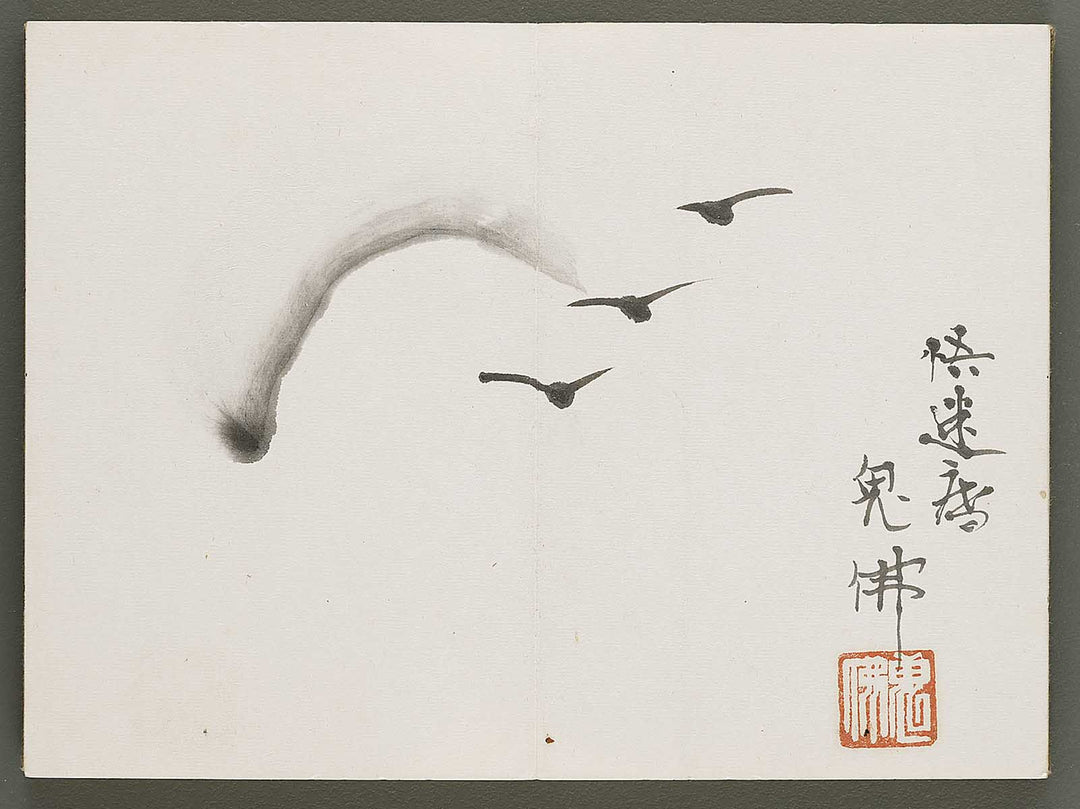 悟迷
鬼佛
鬼佛